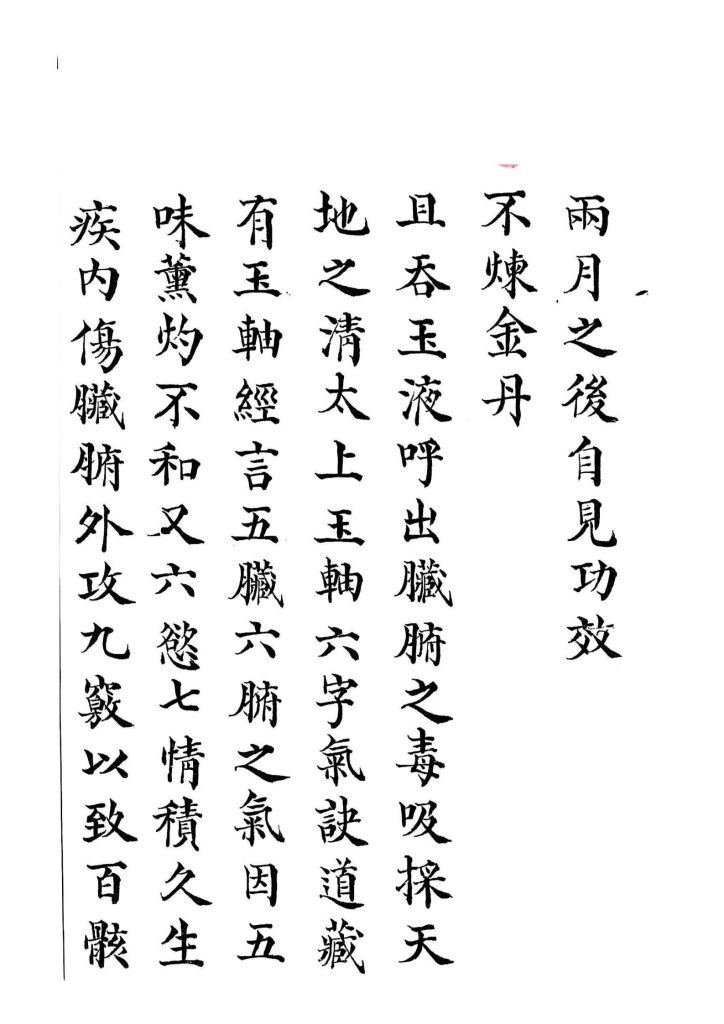 兩月之後自見功效
不煉金丹
且吞玉液呼出臟腑之毒吸採天
地之清太上玉軸六字氣訣道藏
有玉軸經言五臟六腑之氣因五
味薰灼不和又六慾七情積久生
疾內傷臟腑外攻九竅以致百骸